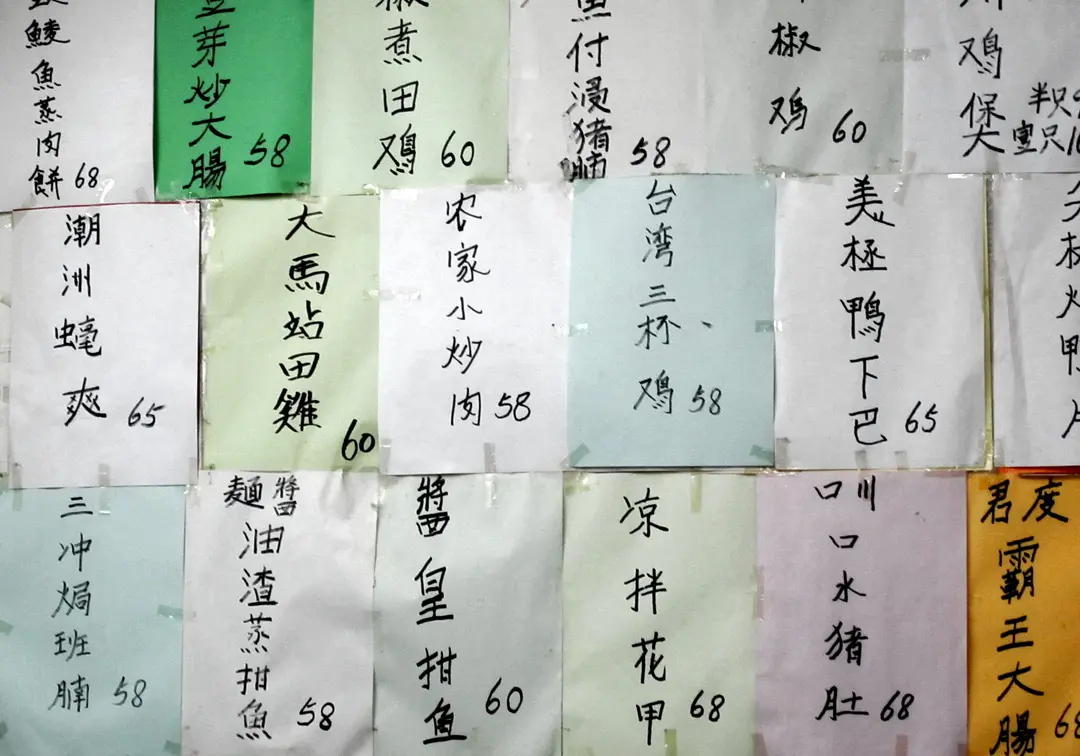 鯪魚蒸肉餅 68
芽炒大腸 58
煮田鸡 60
付浸猪腩 58
椒鸡 60
鸡保
大
半只
潮洲蠔爽 65
大馬站田雞 60
农家小炒肉 58
台湾三杯、鸡 58
美极鴨下巴 65
三冲焗班腩 58
麵醬油渣蒸拑魚 58
醬皇拑鱼 60
凉拌花甲 68
口川口水猪肚 68
君度霸王大腸 68